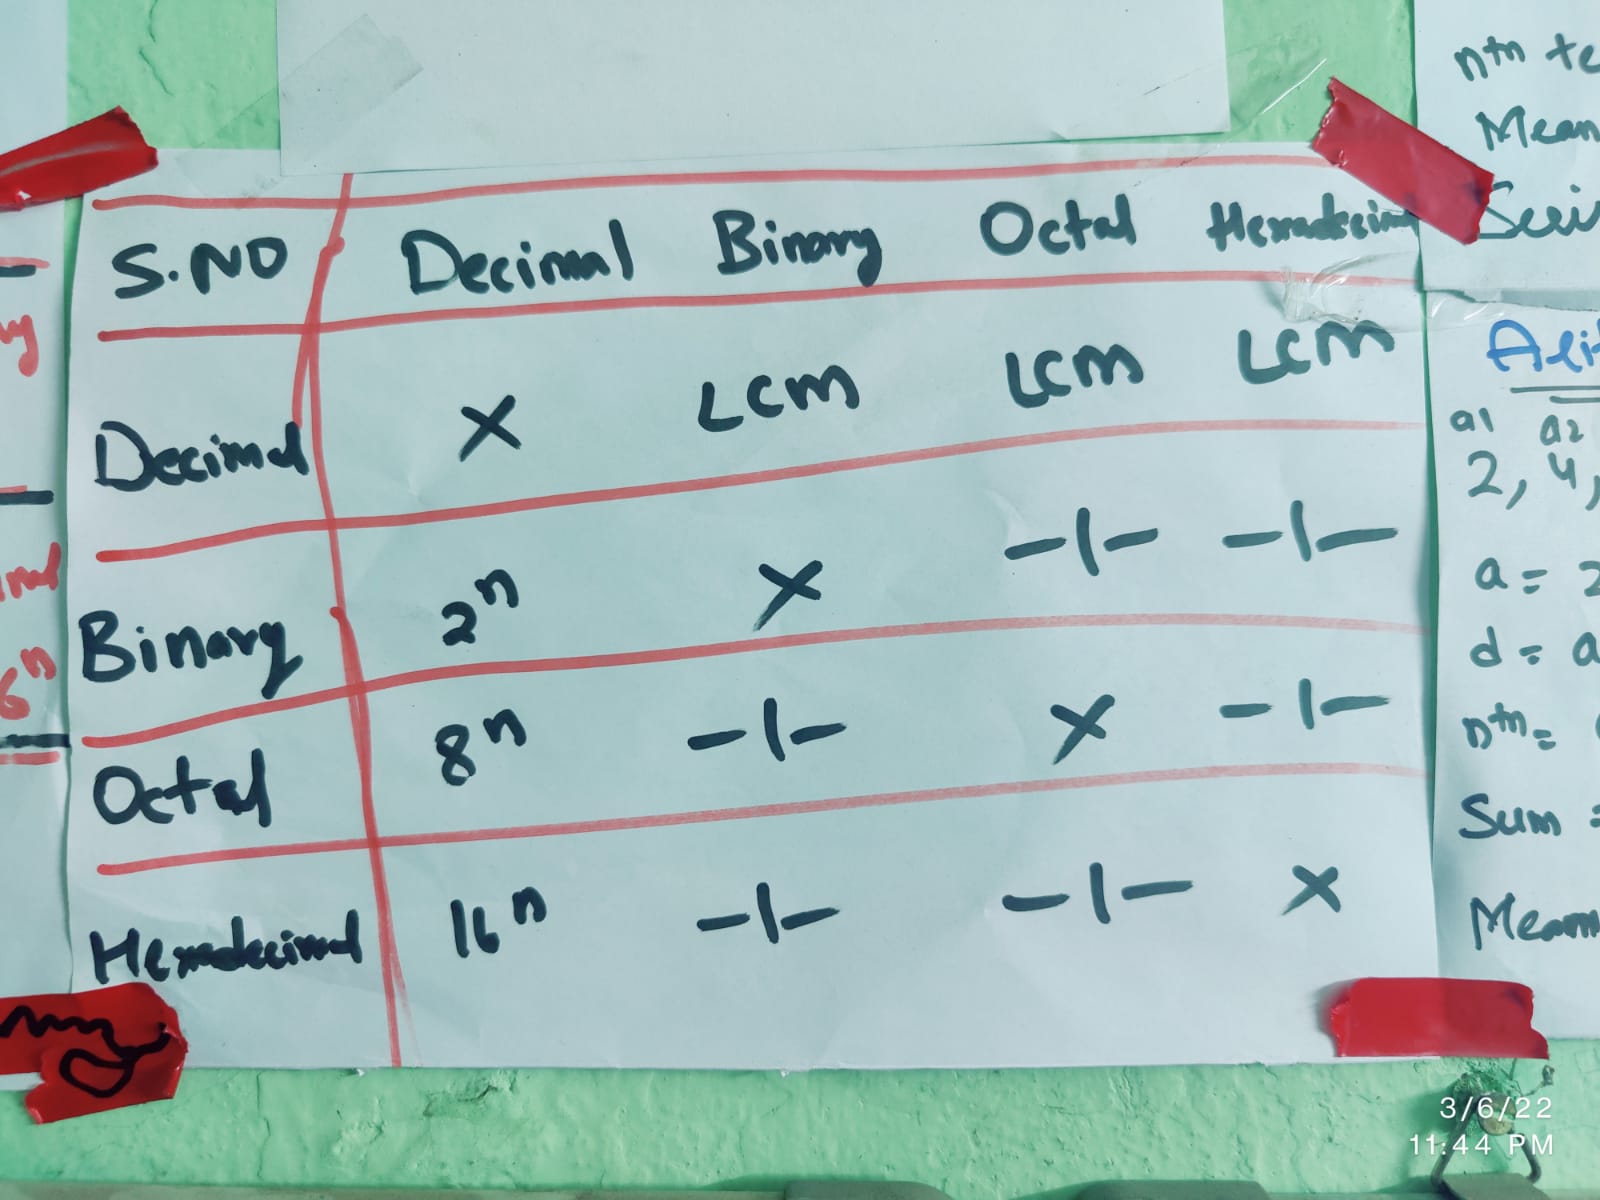 S.NO Decimal Binary Octal Hexadecimal
Decimal X LCM LCM LCM
Binary 2ⁿ X -|- -|-
Octal 8ⁿ -|- X -|-
Hexadecimal 16ⁿ -|- -|- X
nth te
Mean
a1 a2
2, 4,
a = 2
d = a
nth =
Sum =
Mean
6ⁿ
3/6/22
11:44 PM